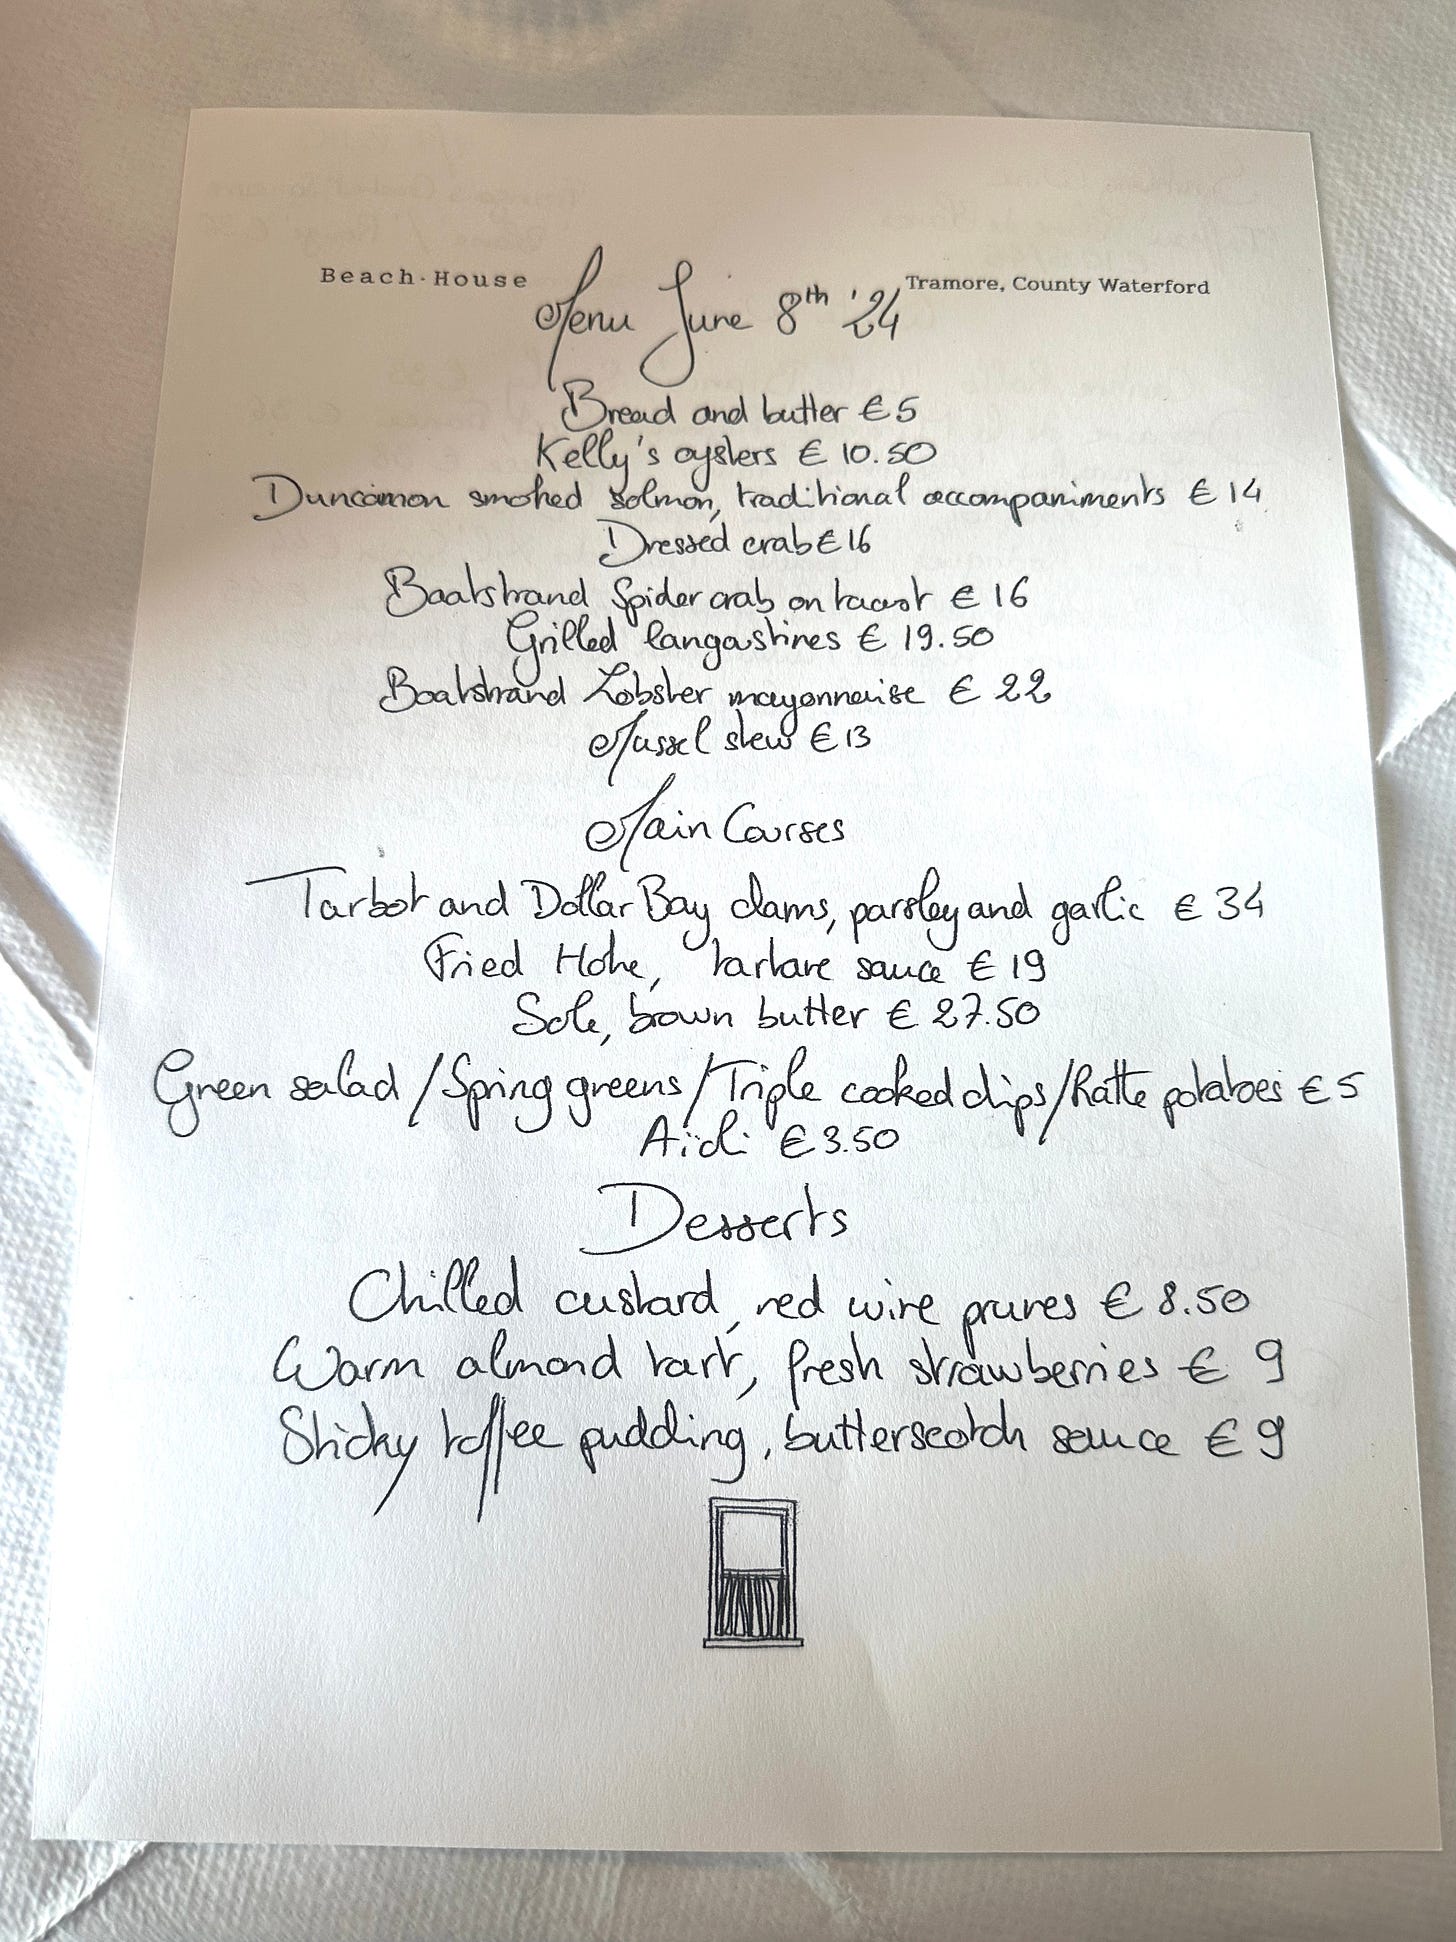 Beach·House
Tramore, County Waterford
Menu June 8th '24
Bread and butter € 5
Kelly's oysters € 10.50
Duncannon smoked salmon, traditional accompaniments € 14
Dressed crab € 16
Boatstrand Spider crab on toast € 16
Grilled langoustines € 19.50
Boatstrand Lobster mayonnaise € 22
Mussel stew € 13
Main Courses
Turbot and Dollar Bay clams, parsley and garlic € 34
Fried Hake, tartare sauce € 19
Sole, brown butter € 27.50
Green salad / Spring greens / Triple cooked chips / Ratte potatoes € 5
Aïoli € 3.50
Desserts
Chilled custard, red wine prunes € 8.50
Warm almond tart, fresh strawberries € 9
Sticky toffee pudding, butterscotch sauce € 9